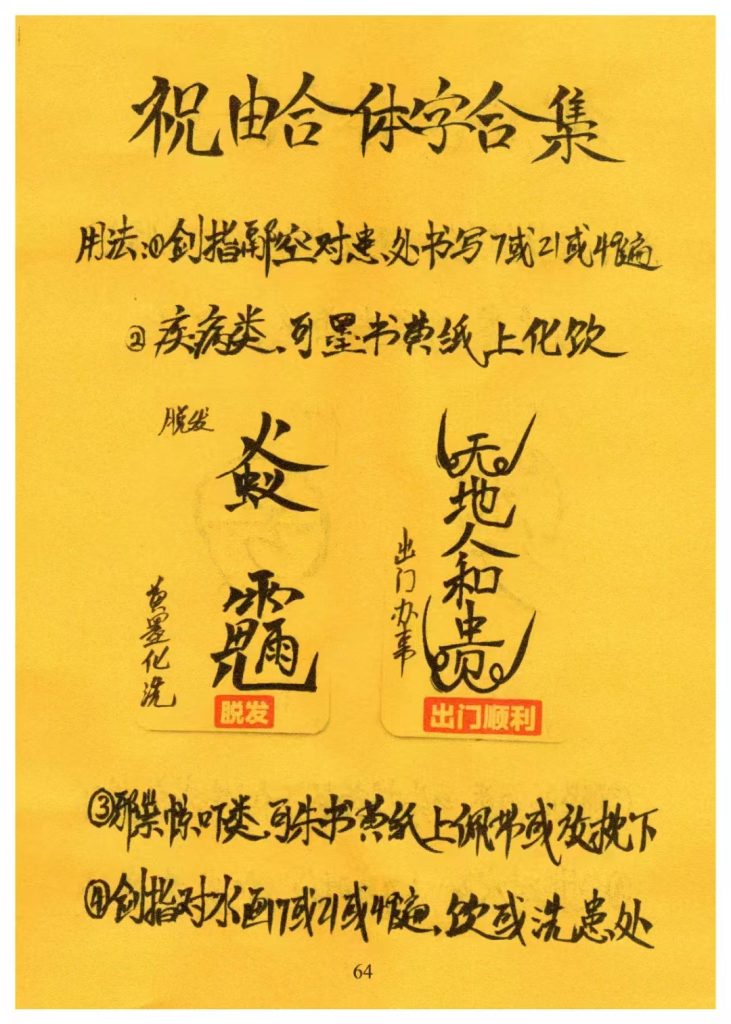 祝由合体字合集
用法:①剑指空对患处书写7或21或49遍
②疾病类、可墨书黄纸上化饮
脱发
黄墨化洗
脱发
天地人和贵
出门办事
出门顺利
③邪祟惊吓类、可朱书黄纸上佩带或放枕下
④剑指对水画17或21或49遍、饮或洗患处
64